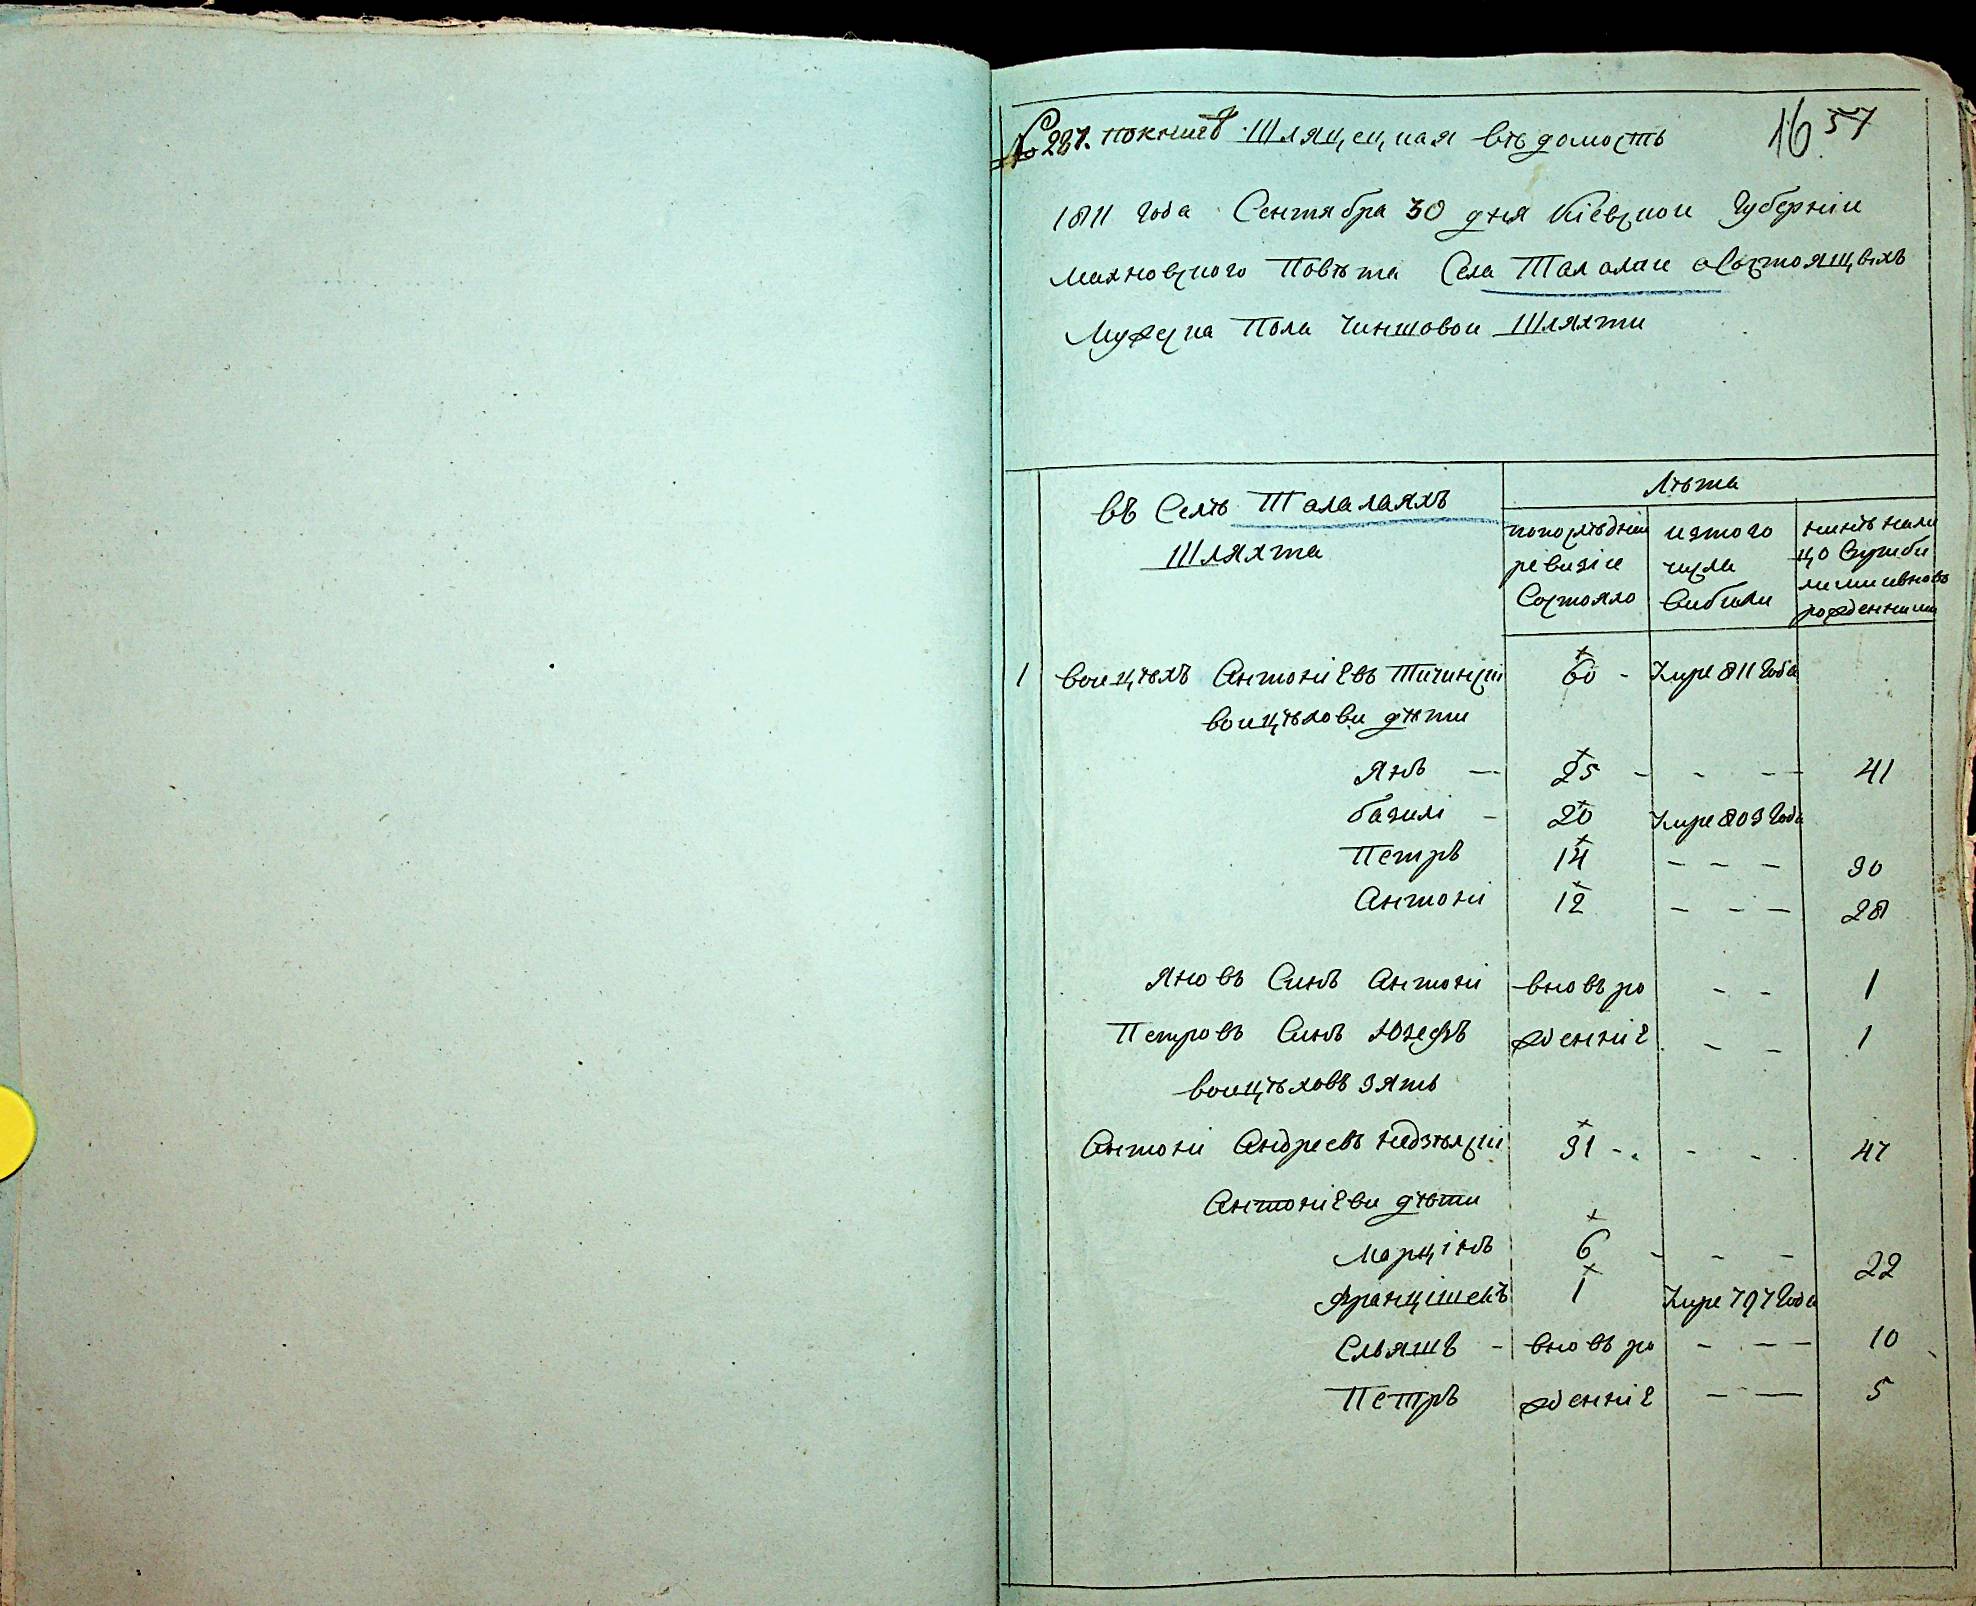 № 287. по книге Шляцецкая вѣдомость
16 57
1811 года Сентября 30 дня Кіевской Губерніи
Махновского Повѣта Села Талалаи о Состоящихъ
Мужеска Пола Чиншовои Шляхти
въ Селѣ Талалаяхъ
Шляхта
Лѣта
по послѣднеи
ревизіи
Состояло
из того
числа
вибили
нинѣ нали
цо Служби
рожденними
1 воицѣхъ Антоніевъ 60 - Умре 811 Года
воицѣхови дѣти
Янъ — 25 - - — 41
базилі - 20 Умре 809 Года
Петръ 14 - - - 30
Антони 12 - - - 28
Яновъ Синъ Антони вновъ ро - - 1
Петровъ Синъ Юзефъ жденніе - - 1
воицѣховъ зять
Антони Андреевъ 31 - - - 47
Антоніеви дѣти
Марцінъ 6 - - - 22
Францішекъ 1 Умре 797 Года
Ельяшъ - вновъ ро - - — 10
Петръ жденніе - — 5